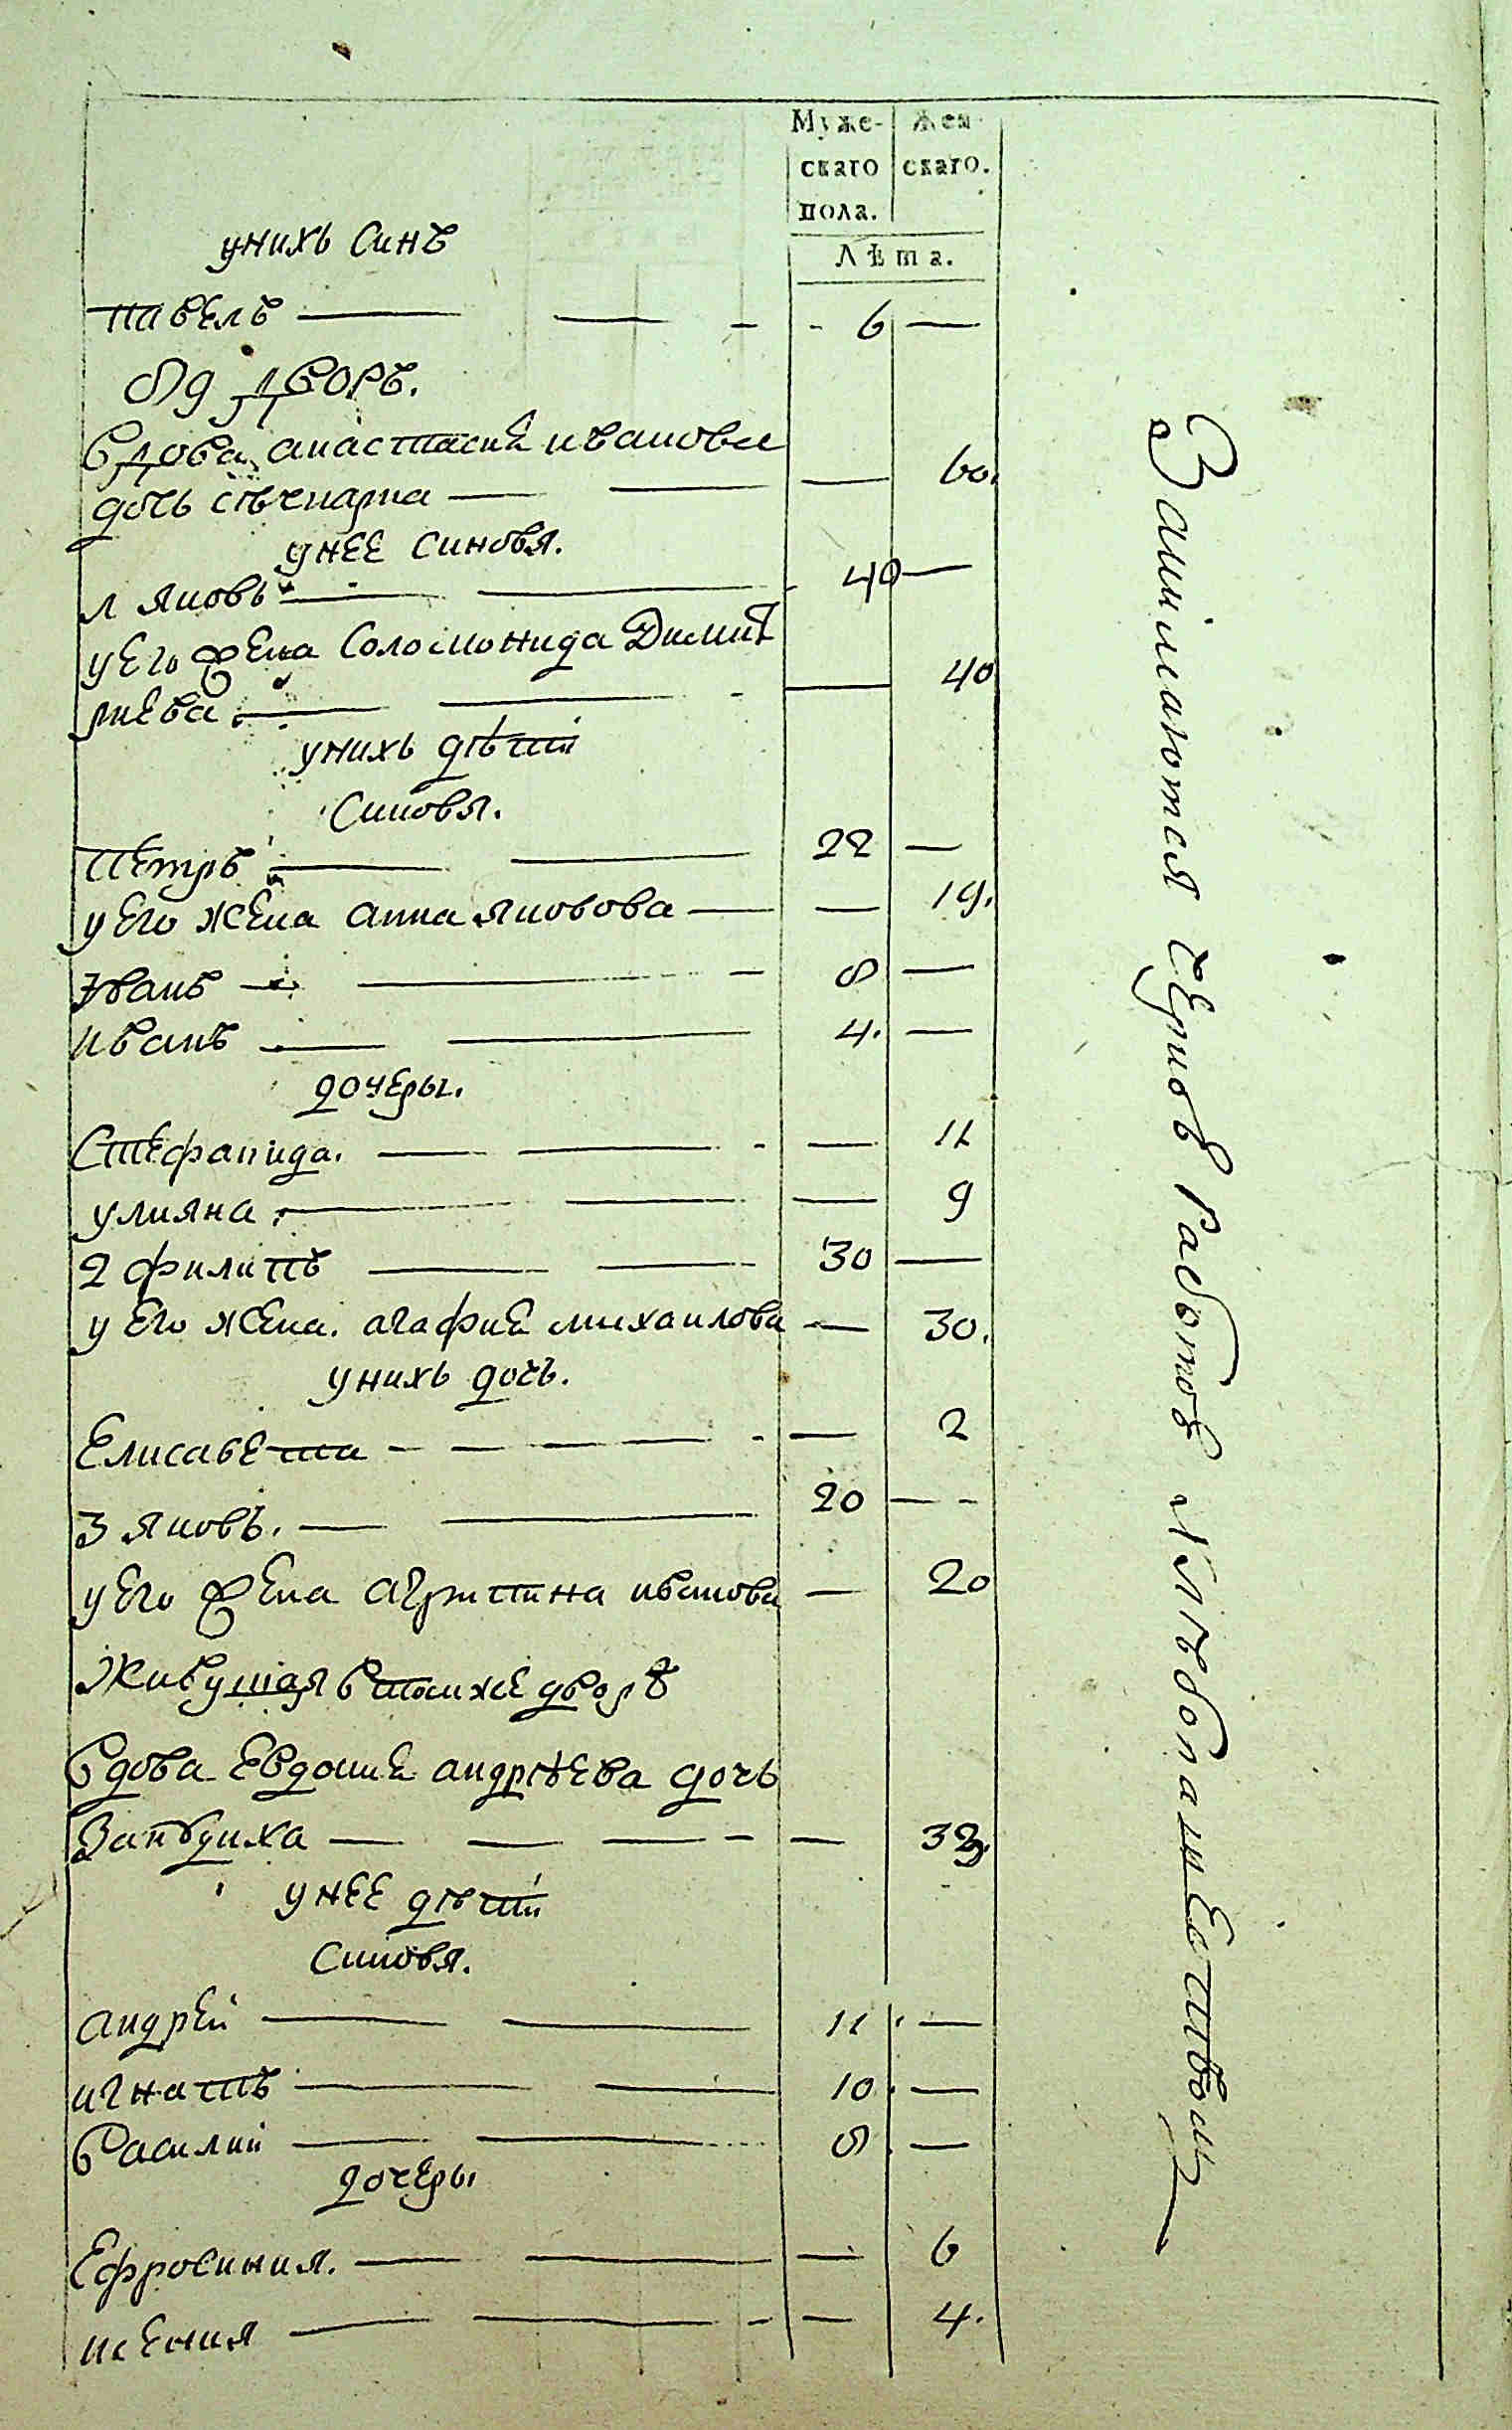 Муже-
скаго
пола.
Жен
скаго.
Лѣта.
унихъ синъ
павелъ — — - - 6 —
89 дворъ.
вдова анастасия иванова
дочь — — — 60.
унее синовя.
1 яковъ — — 40 —
у его жена Соломонида Димит
риева — — - — 40
унихъ дѣти
Синовя.
Петръ — — 22 —
у его жена анна яковова — — 19.
Иванъ — — - 8 —
иванъ — — 4. —
дочеры.
Стефанида. — — - — 11
улияна — — — 9
2 филипъ — — 30 —
у его жена. агафия михаилова — 30.
унихъ дочъ.
Елисавета - — — — - — 2
3 яковъ. — — 20 — -
у его жена агрипина иванова — 20
Живущая втомже дворѣ
Вдова Евдокия андрѣева дочь
— — — - — 33.
унее дѣти
Синовя.
андрей — — 11 —
игнатъ — — 10 —
Василий — — 8 —
дочеры
Ефросиния. — — — 6
ксения — — - — 4.
Занімаются черной работой и хлѣбопашествомъ